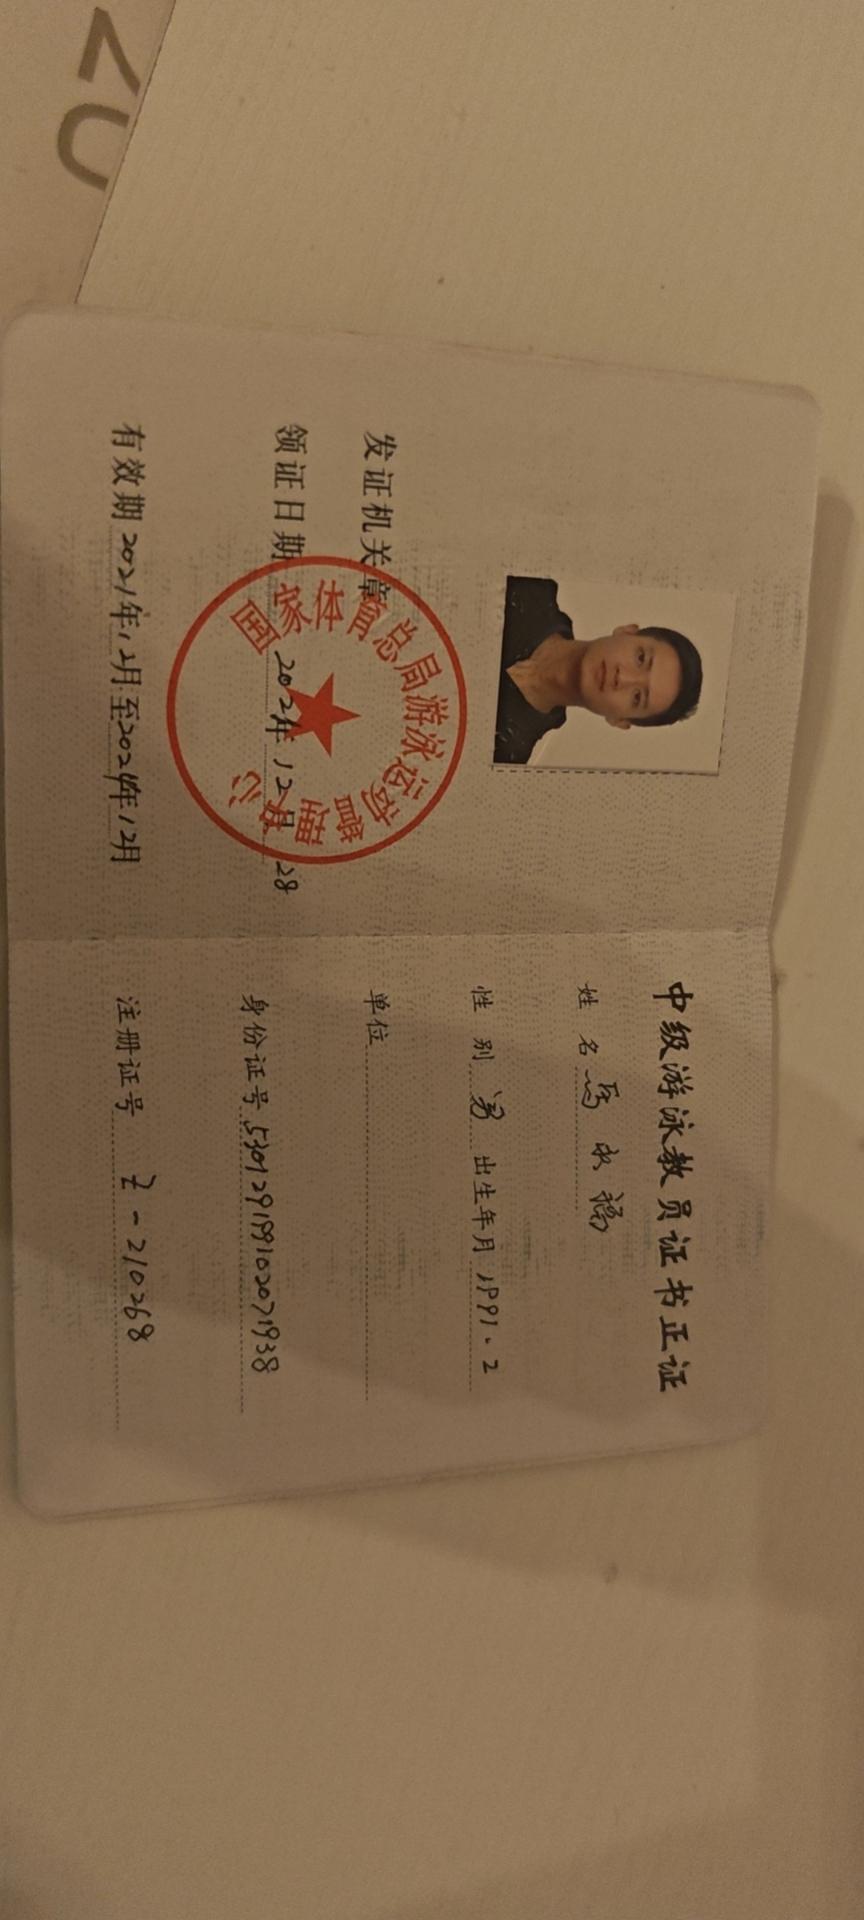 发证机关章
国家体育总局游泳运动管理中心
领证日期 2021年12月28
有效期 2021年12月至2024年12月
中级游泳教员证书正证
姓 名 马永福
性 别 男 出生年月 1991.2
单位
身份证号 530129199102071938
注册证号 Z-210268